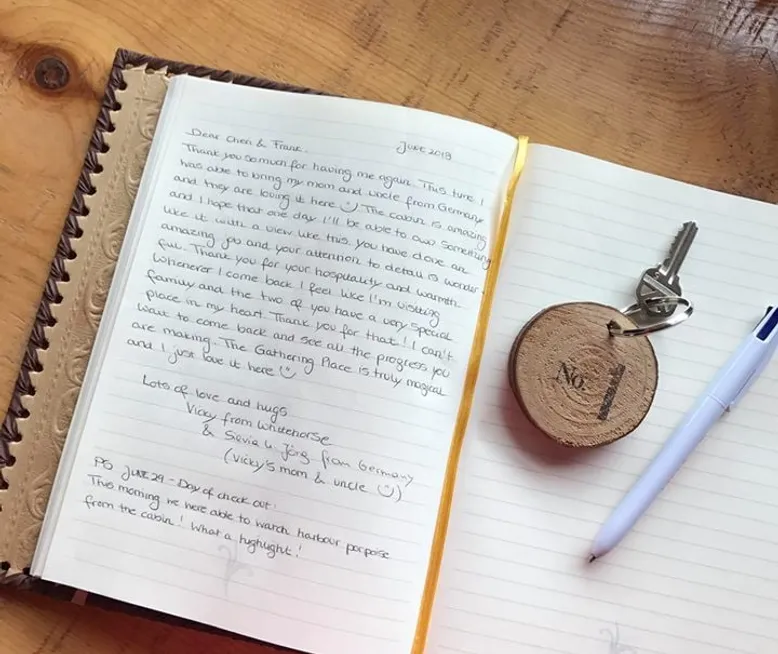 Dear Cheri & Frank. June 2019
Thank you so much for having me again. This time I
was able to bring my mom and uncle from Germany
and they are loving it here The cabin is amazing
and I hope that one day I'll be able to own something
like it with a view like this. You have done an
amazing job and your attention to detail is wonder-
ful. Thank you for your hospitality and warmth
Whenever I come back I feel like I'm visiting
family and the two of you have a very special
place in my heart. Thank you for that! I can't
wait to come back and see all the progress you
are making. The Gathering Place is truly magical
and I just love it here
Lots of love and hugs
Vicky from Whitehorse
& Silvia u. Jörg from Germany
(Vicky's mom & uncle )
PS June 29 - Day of check out:
This morning we were able to watch harbour porpoise
from the cabin! What a highlight!
No. 1